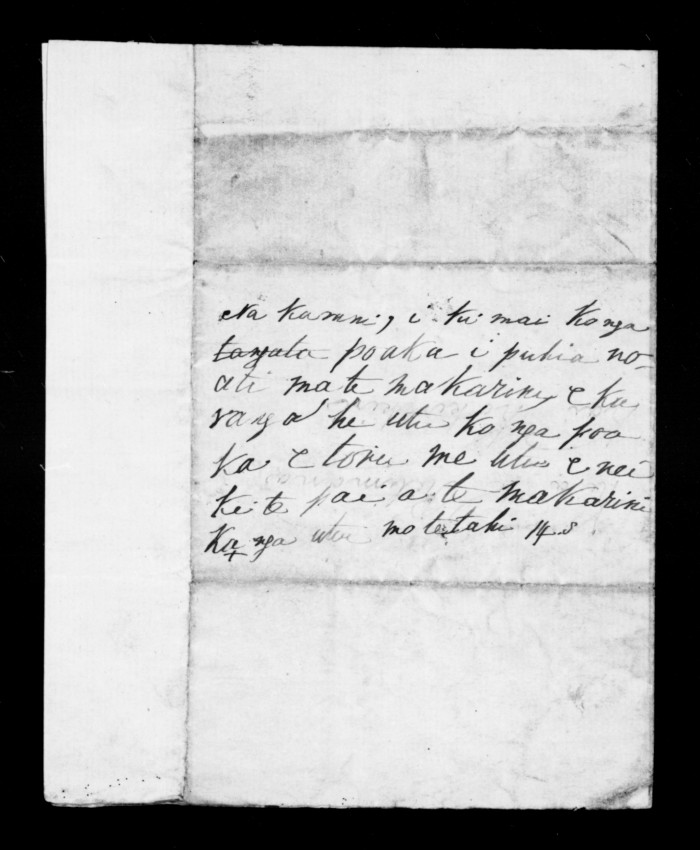 Na Karini, i ki mai ko nga
tangata poaka i puhia no
ati ma te makarini, e ka
ranga he utu ko nga poa
ka e toru me utu e nei
ki te pai a te makarini
Ka nga utu mo te tahi 14.s